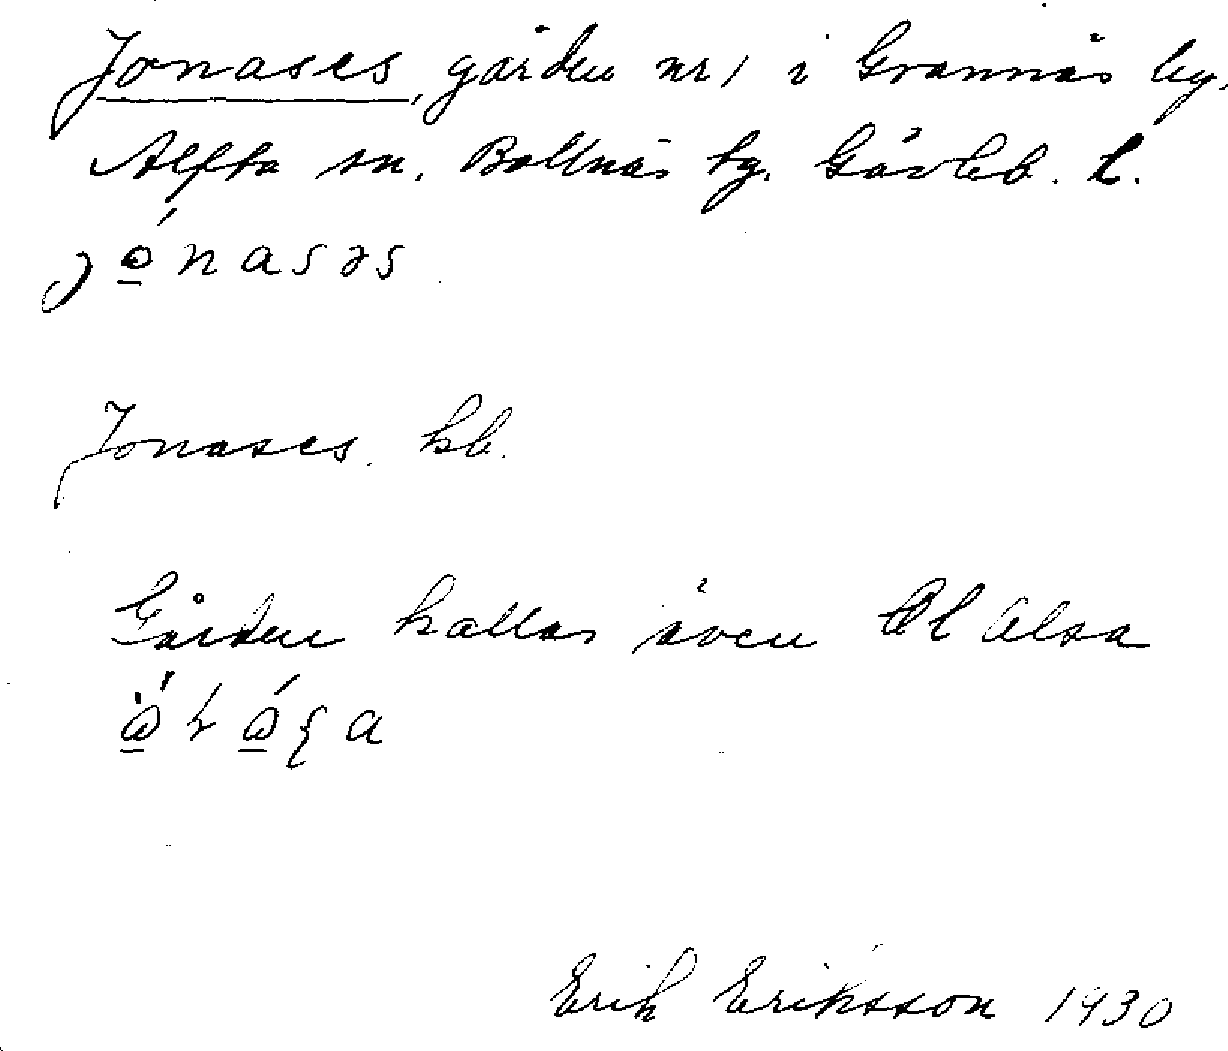 Jonases, gården nr 1 i Grannäs by.
Alfta sn. Bollnäs tg. Gävleb. l.
jónasəs
Jonases. kb.
Gården kallas även Ol Olsa
Erik Eriksson 1930